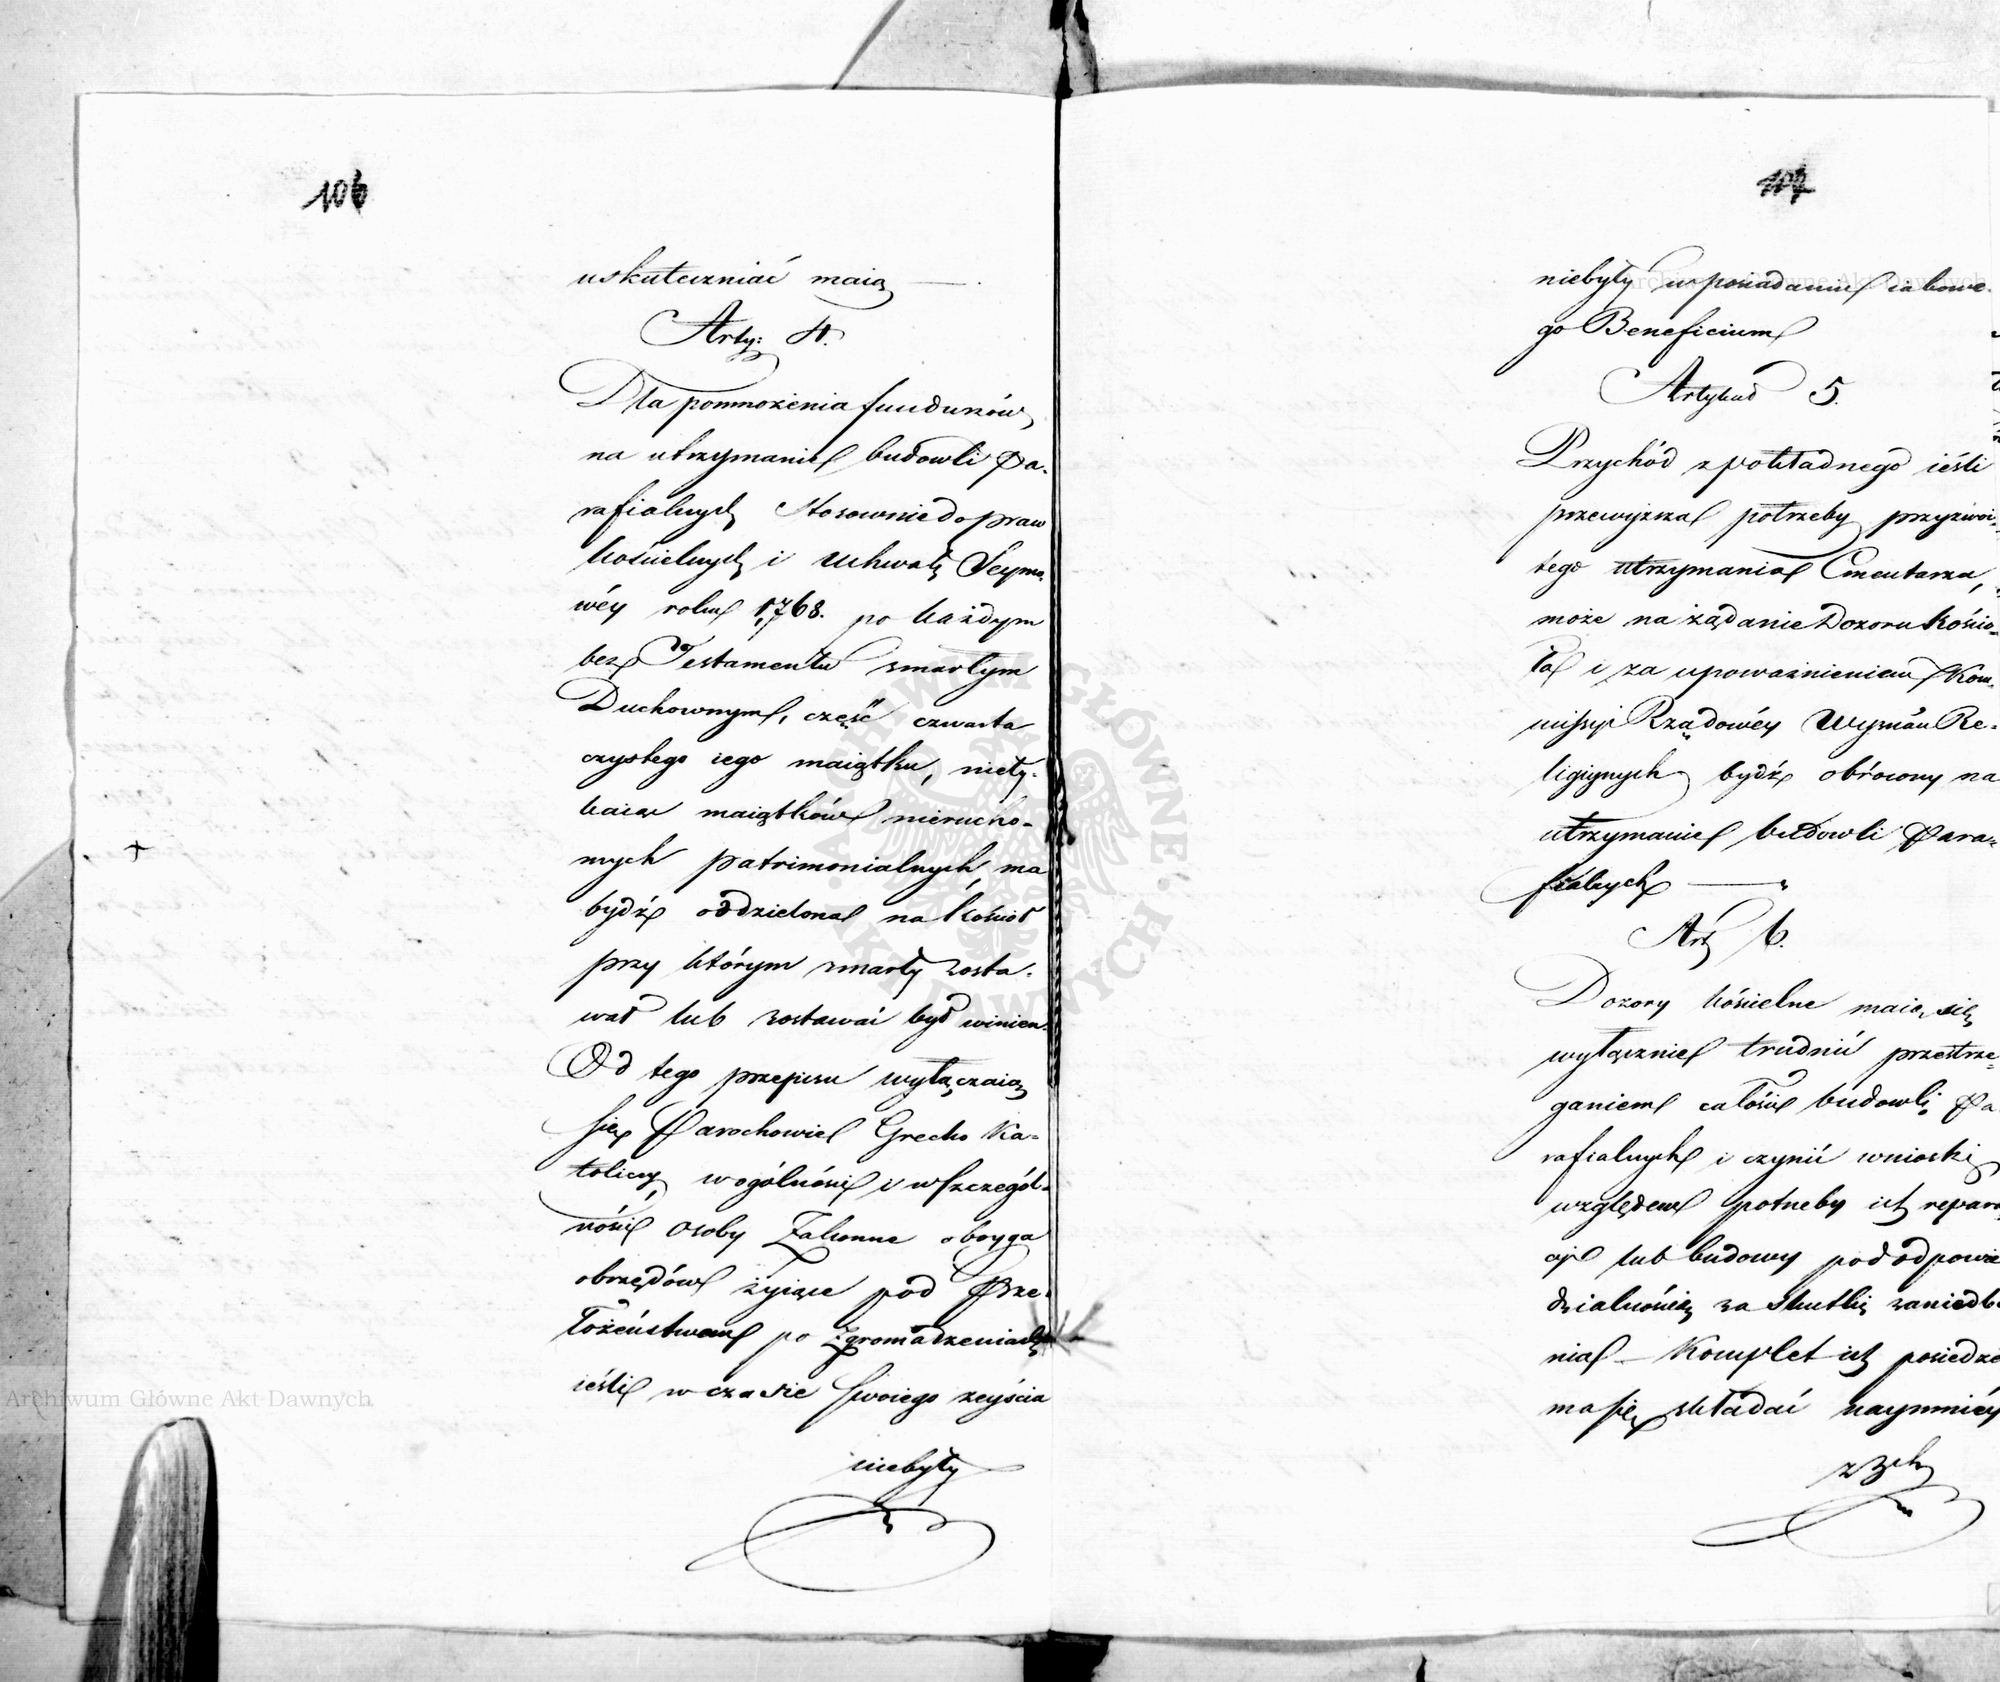 106
uskuteczniać maią
Arty: 4.
Dla pomnożenia funduszów
na utrzymanie budowli Pa-
rafialnych stosownie do praw
kościelnych i Uchwały Seymo-
wéy roku 1768. po każdym
bez Testamentu zmarłym
Duchownym, część czwarta
czystego iego maiątku, nietý-
kaiąc maiątków nierucho-
mych patrimonialnych, ma
bydź oddzielona na Kościoł
przy którym zmarły zosta-
wał lub zostawać był winien.
Od tego przepisu wyłączaią
się Parochowie Grecko Ka-
tolicy, w ogólności i w szczegól-
ności osoby Zakonne oboyga
obrzędów żyiące pod Prze-
łożeństwem po Zgromadzeniach
ieśli w czasie swoiego zeyścia
niebyły
107
niebyły w posiadaniu iakowe-
go Beneficium
Artykuł 5.
Przychód z pokładnego ieśli
przewyższa potrzeby przyzwoi-
tego utrzymania Cmentarza,
może na żądanie Dozoru Kościo-
ła i za upoważnieniem Kom-
missyi Rządowéy Wyznań Re-
ligiynych bydź obrócony na
utrzymanie budowli Para-
fialnych
Art 6.
Dozory kościelne maią się
wyłącznie trudnić przestrze-
ganiem całości budowli Pa-
rafialnych i czynić wnioski
względem potrzeby ich repara-
cyi lub budowy pod odpowie
dzialnością za skutki zaniedba
nia - Komplet ich posiedze
ma się składać naymniéy
z 3ch
Archiwum Główne Akt Dawnych
Archiwum Główne Akt Dawnych
ARCHIWUM GŁÓWNE AKT DAWNYCH